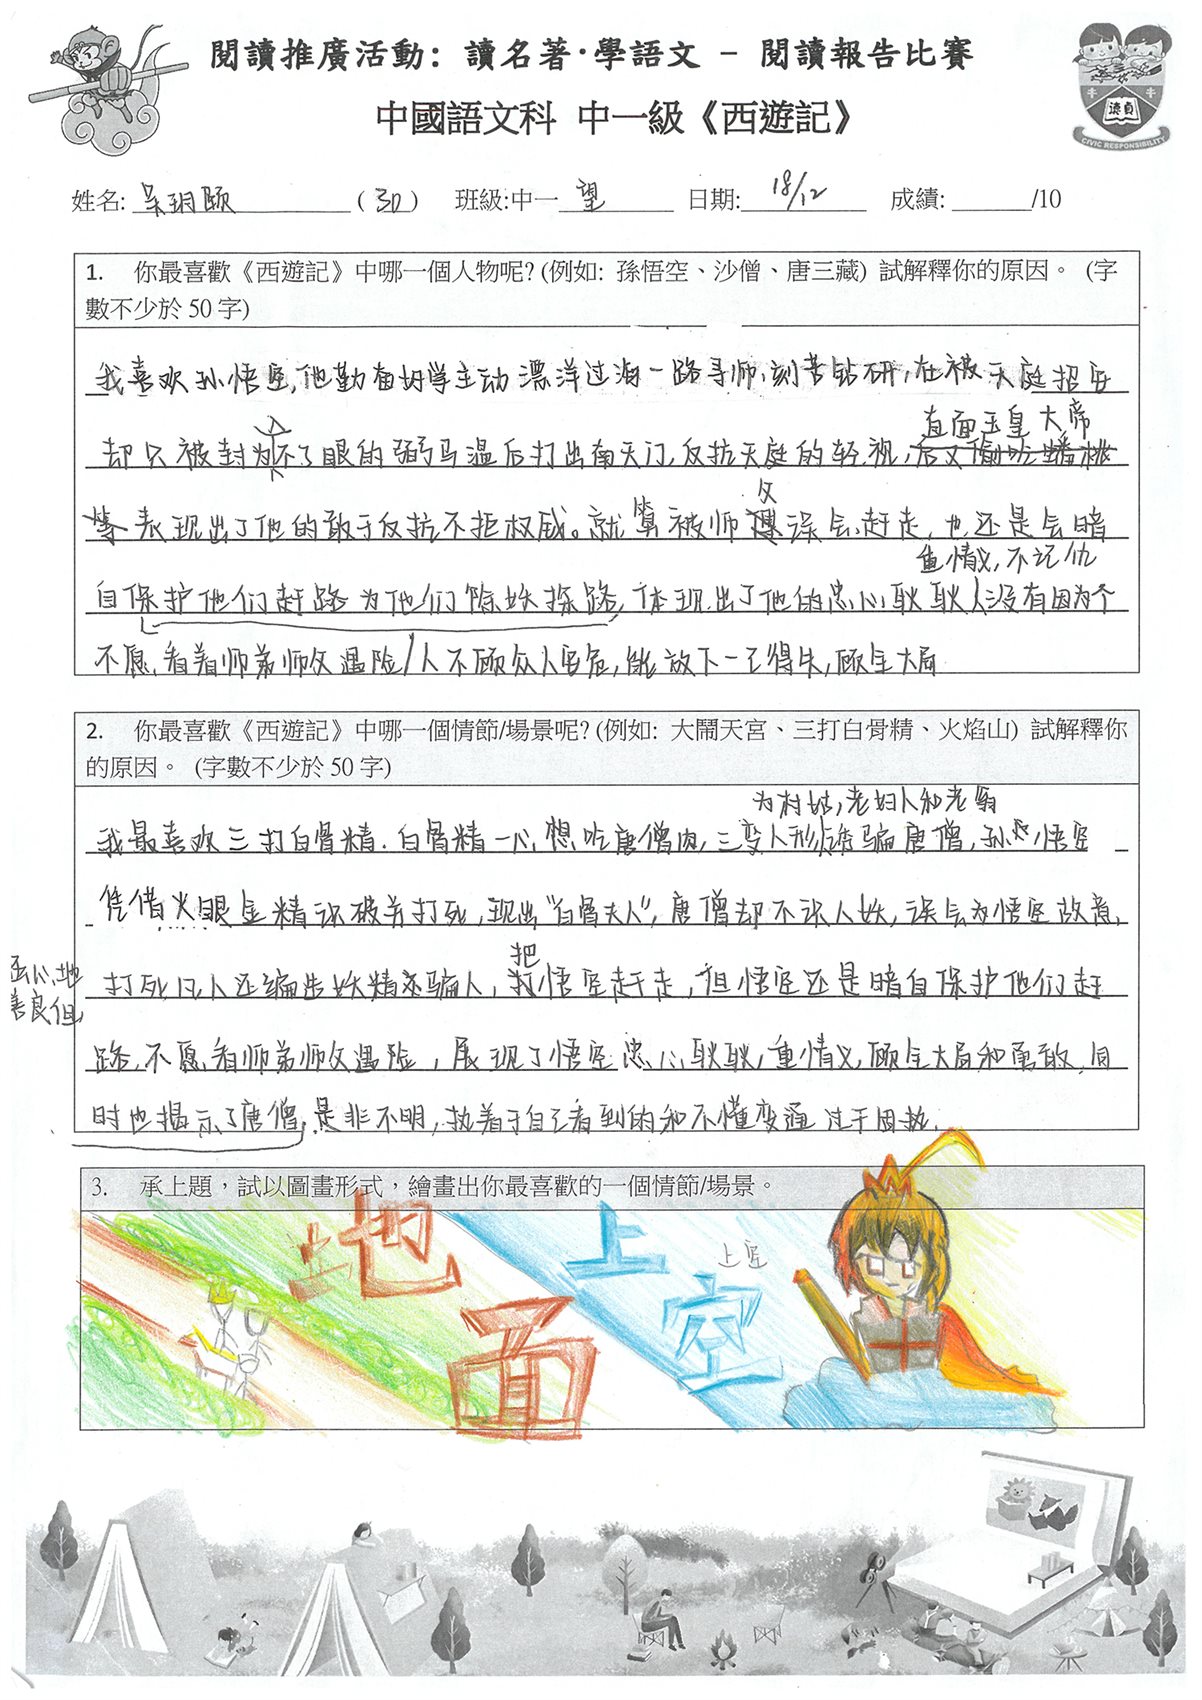 閱讀推廣活動: 讀名著·學語文 - 閱讀報告比賽
中國語文科 中一級《西遊記》
濃貞
CIVIC RESPONSIBILITY
姓名: 吴玥颐 (30) 班級:中一 望 日期: 18/12 成績: /10
1. 你最喜歡《西遊記》中哪一個人物呢? (例如: 孫悟空、沙僧、唐三藏) 試解釋你的原因。 (字
數不少於 50 字)
我喜欢孙悟空,他勤奋好学主动漂洋过海一路寻师、刻苦钻研,在被天庭招安
直面玉皇大帝
却只被封为不了眼的弼马温后打出南天门,反抗天庭的轻视,后又偷吃蟠桃
父
等表现出了他的敢于反抗不拒权威。就算被师 误会赶走,也还是会暗
重情义,不记仇
自保护他们赶路为他们除妖探路,体现出了他的忠心耿耿 没有因为个
不愿看着师弟师父遇险/人不顾众人安危,能放下一己得失,顾全大局
2. 你最喜歡《西遊記》中哪一個情節/場景呢? (例如: 大鬧天宮、三打白骨精、火焰山) 試解釋你
的原因。 (字數不少於 50 字)
为村姑,老妇人和老翁
我最喜欢三打白骨精.白骨精一心想吃唐僧肉,三变人形 骗唐僧,孙悟空
凭借火眼金精识破并打死,现出“白骨夫人”,唐僧却不识人妖,误会为悟空故意
把
打死凡人还编造妖精来骗人, 悟空赶走,但悟空还是暗自保护他们赶
心地
善良但
路,不愿看师弟师父遇险,展现了悟空忠心耿耿,重情义,顾全大局和勇敢.同
时也揭示了唐僧是非不明,执着于自己看到的和不懂变通过于固执.
3. 承上題,試以圖畫形式,繪畫出你最喜歡的一個情節/場景。
地面
上空
上空